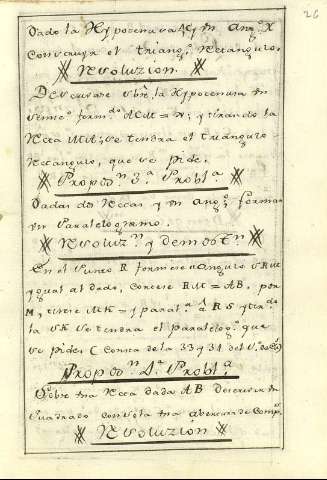 26
Dado la Hypotenusa AC, y un ang.º X
Construir el triang.º Rectangulo
Resoluzion
Descrivase sobre la Hypotenusa un
semic.º y tirando la
Recta se tendra el triangulo
Rectangulo, que se pide.
Propos.n 3.ª Probl.ª
Dadas dos Rectas y un ang.º formar
un Paralelogramo.
Resoluz.n y demost.n
En el Punto R formese el Angulo
ygual al dado, Cortese RM = AB, por
M, tirese MK = y paral.ª á RS
la SK se tendra el paralelog.º que
se pide; (Consta de la 33 y 34 del
Propos.n 4.ª Probl.ª
Sobre una Recta dada AB Descrivir un
Quadrado con sola una abertura de Comp.s
Resoluzión